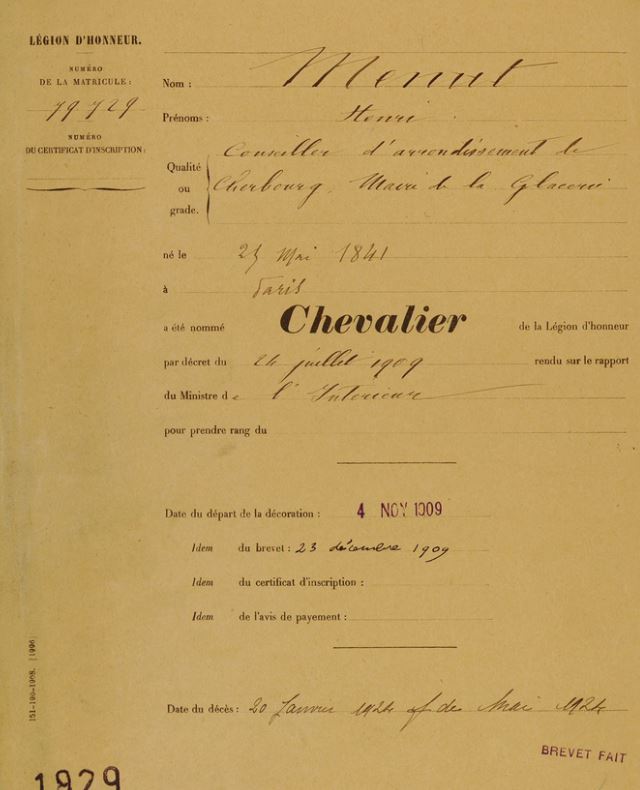 LÉGION D'HONNEUR.
NUMÉRO
DE LA MATRICULE :
79.729
NUMÉRO
DU CERTIFICAT D'INSCRIPTION :
Nom : Menut
Prénoms : Henri
Qualité ou grade. Conseiller d'arrondissement de
Cherbourg, Maire de la Glacerie
né le 25 Mai 1841
à Paris
a été nommé Chevalier de la Légion d'honneur
par décret du 24 juillet 1909 rendu sur le rapport
du Ministre de l'Intérieur
pour prendre rang du
Date du départ de la décoration : 4 NOV 1909
Idem du brevet : 23 décembre 1909
Idem du certificat d'inscription :
Idem de l'avis de payement :
Date du décès : 20 Janvier 1924 de Mai 1924
BREVET FAIT
151-190-1908. [1996]
1929